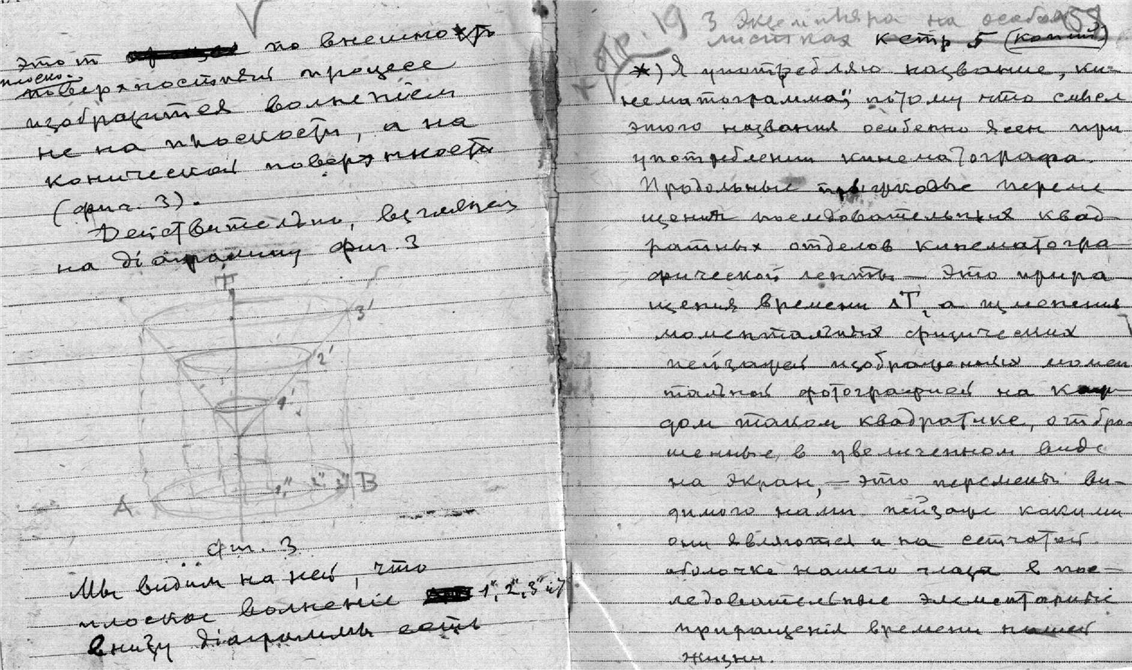 Этот по внешно
плоско-
поверхностный процесс
изобразится волненіем
не на плоскости, а на
конической поверхности
(фиг. 3).
Действительно, взглянем
на діаграмму фиг. 3
T
3'
2'
1'
1" 2" 3" B
A
фиг. 3
Мы видим на ней, что
плоское волненіе 1", 2", 3" и т
внизу діаграммы есть
стр. 19 3 экземпляра на особых
листках к стр 5 (копии)
*) Я употребляю название „ки-
нематограмма", потому что смысл
этого названия особенно ясен при
употреблении кинематографа.
Продольные переме-
щения последовательных квад-
ратных отделов кинематогра-
фической ленты — это прира-
щения времени ΔT, а изменения
моментальных физических
пейзажей изображенных момен-
тальной фотографией на каж-
дом таком квадратике, отбро-
шенные в увеличенном виде
на экран, — это перемены ви-
димого нами пейзажа какими
они являются и на сетчатой
оболочке нашего глаза в пос-
ледовательные элементарные
приращенія времени нашей
жизни.